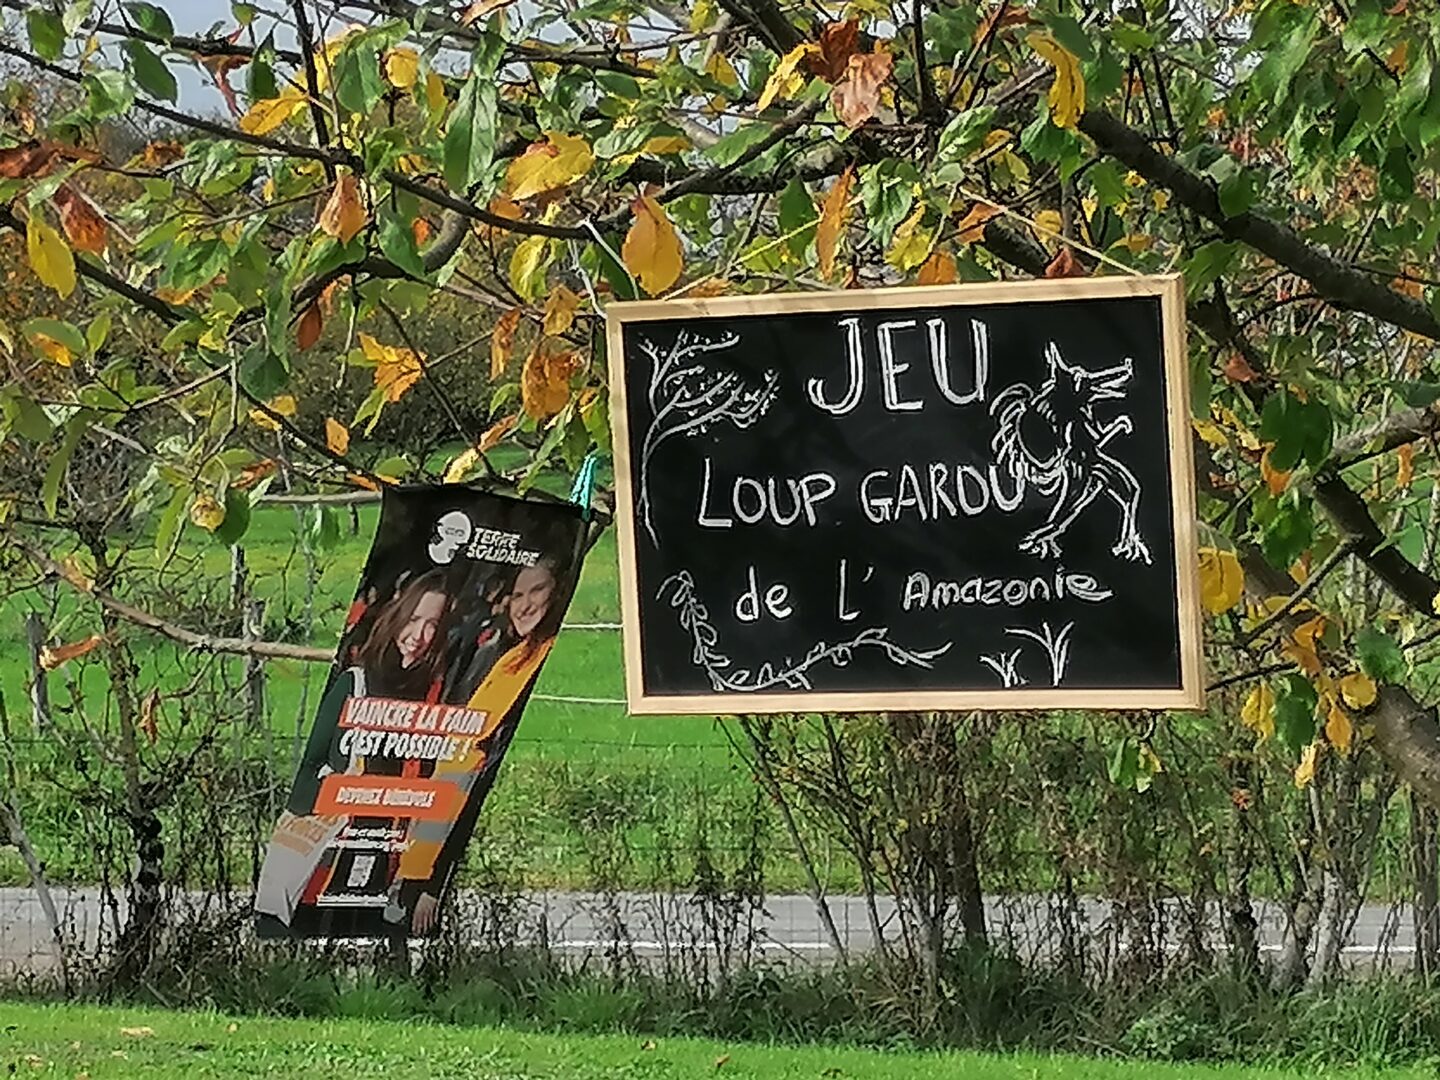 JEU
LOUP GAROU
de L' Amazonie
TERRE
SOLIDAIRE
VAINCRE LA FAIM
C'EST POSSIBLE !
DEVENEZ BÉNÉVOLE